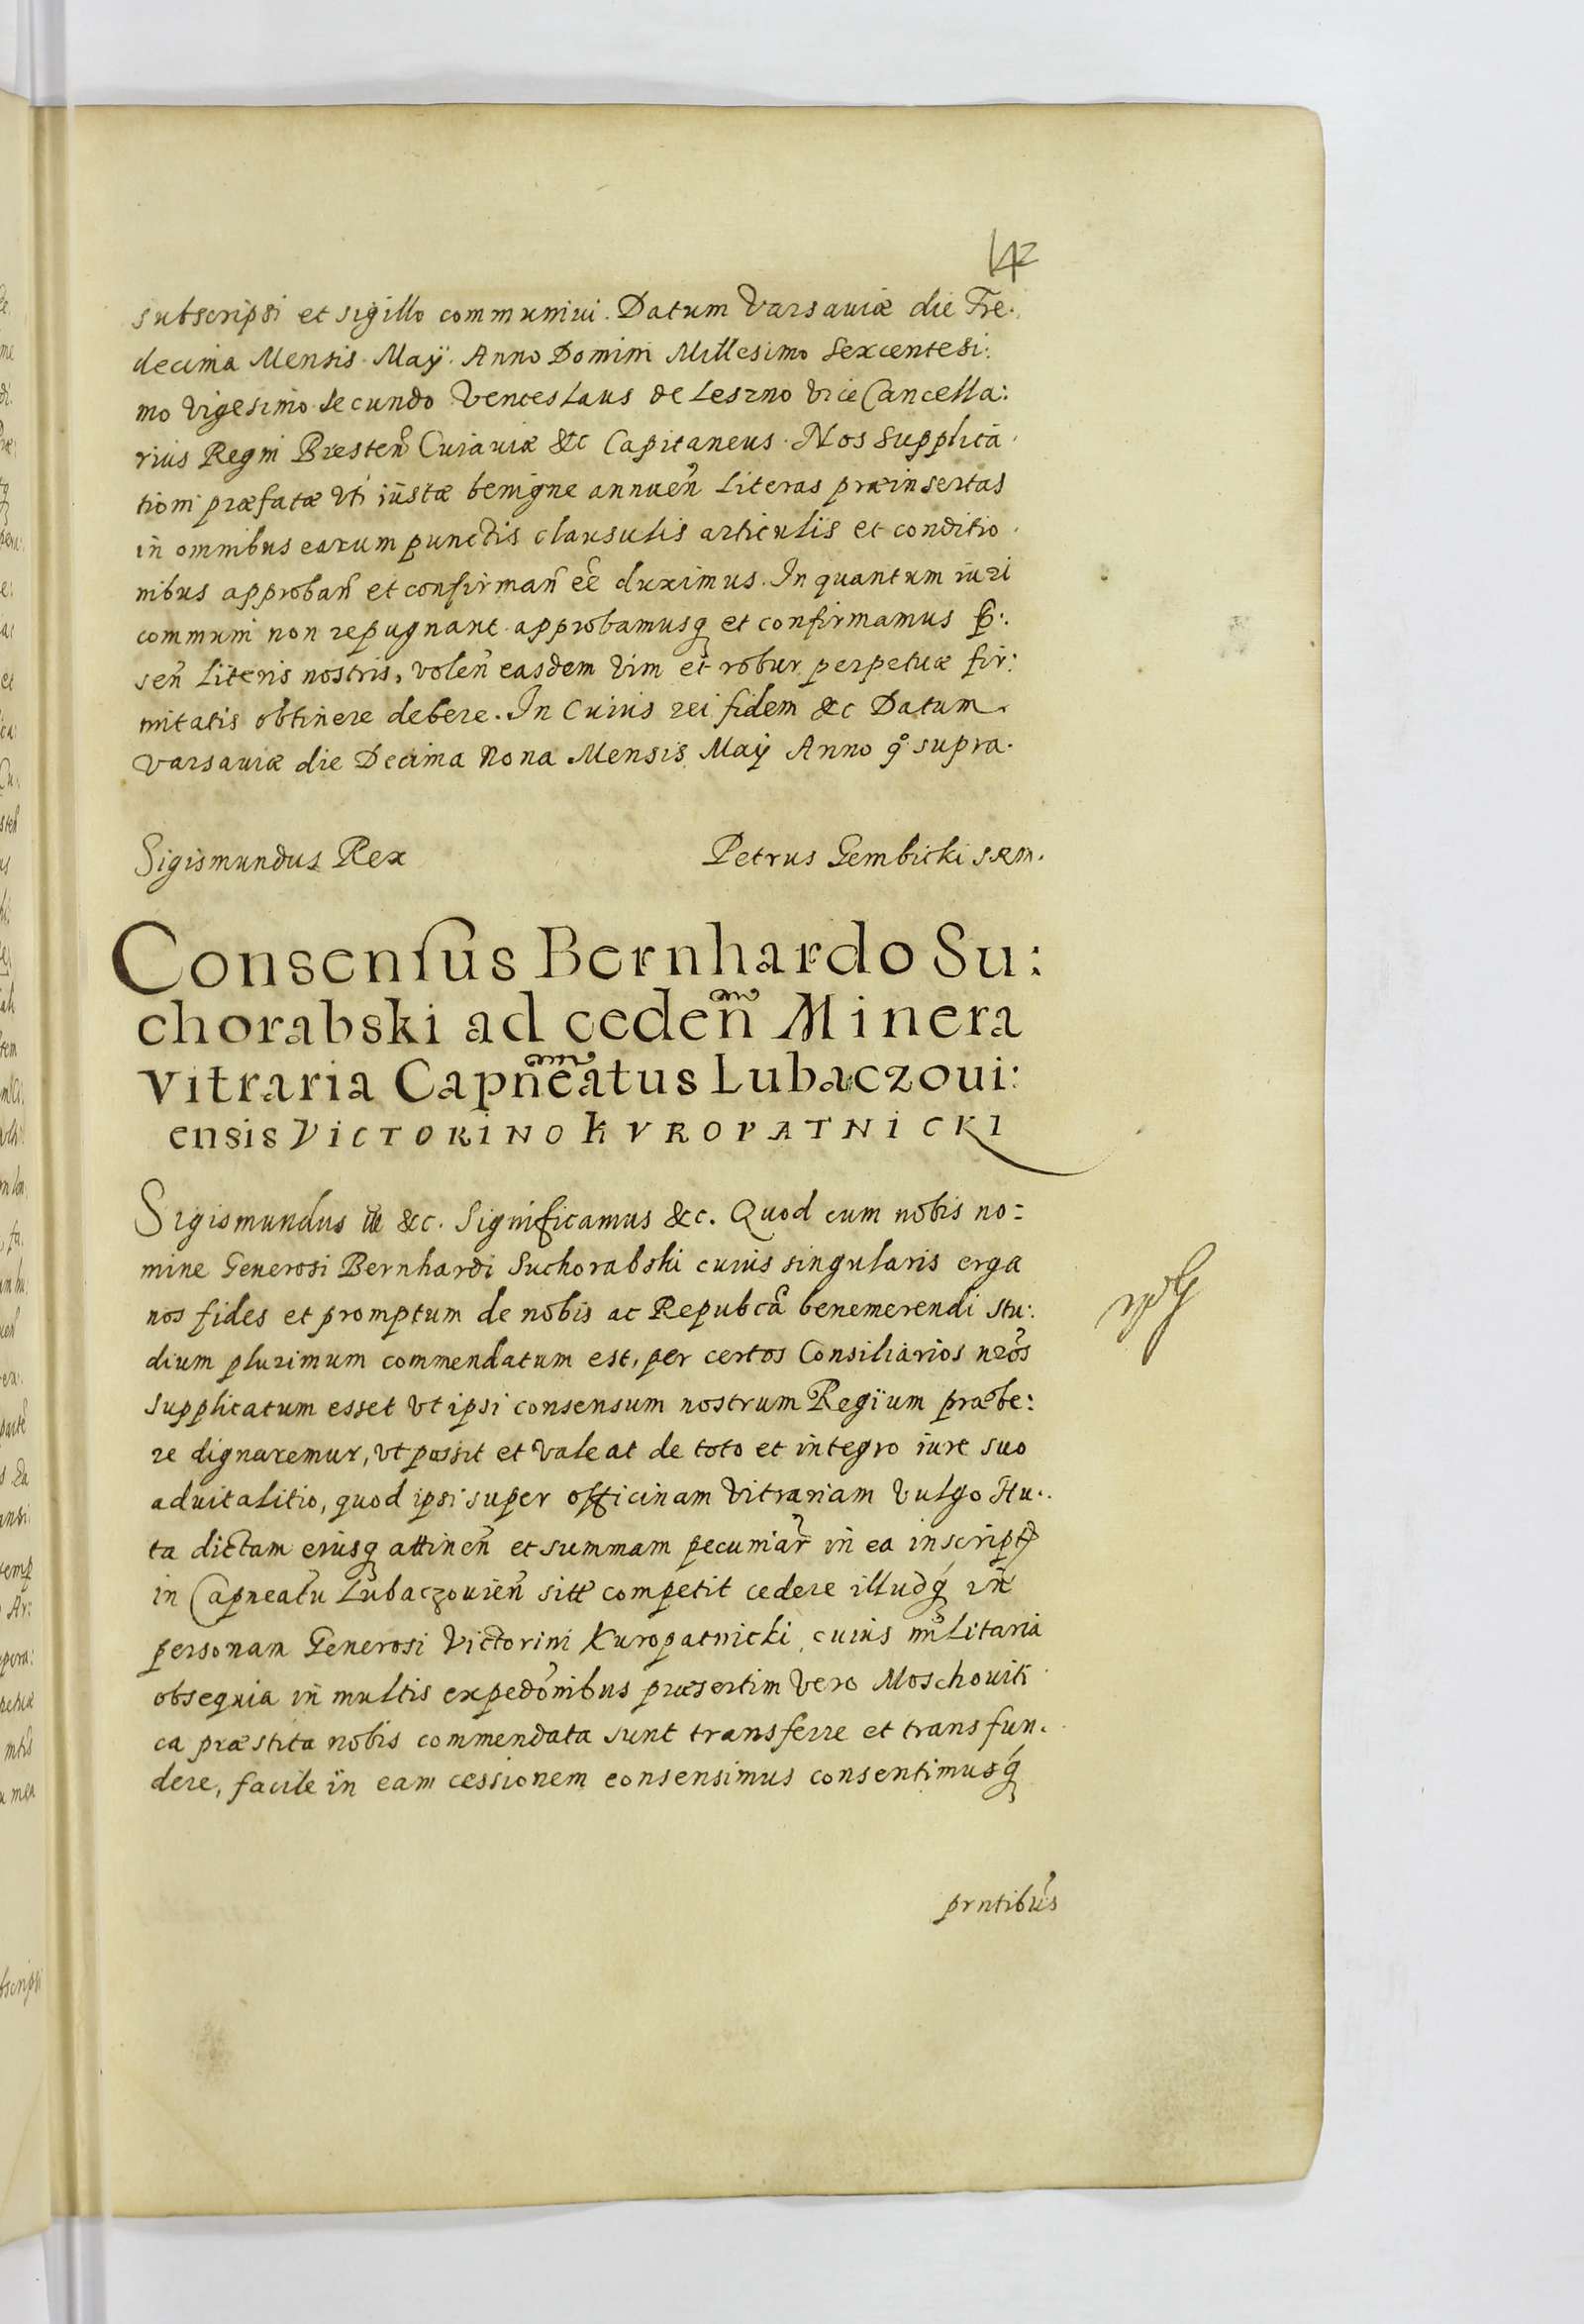 42
subscripsi et sigillo communiui. Datum Varsauiæ die Tre.
decima Mensis Maÿ. Anno Domini Millesimo Sexcentesi:
mo Vigesimo secundo Venceslaus de Leszno Vice Cancella:
rius Regni Bresten̄ Cuiauiæ &c Capitaneus. Nos Supplica
tioni præfatæ Vti iustæ benigne annuen̄ Literas præinsertas
in omnibus earum punctis clausulis articulis et conditio
nibus approban̄ et confirman̄ eē duximus. In quantum iuri
communi non repugnant approbamusq et confirmamus P:
sen̄ Literis nostris, volen̄ easdem Vim et robur perpetuæ fir:
mitatis obtinere debere. In Cuius rei fidem &c Datum
Varsauiæ die Decima Nona Mensis Maÿ Anno qo supra.
Sigismundus Rex Petrus Gembicki S R M.
Consensus Bernhardo Su:
chorabski ad ceden̄ Minera
Vitraria Capn̄eatus Lubaczoui:
ensis VICTORINO KVROPATNICKI
Sigismundus iii &c. Significamus &c. Quod cum nobis no=
mine Generosi Bernhardi Suchorabski cuius singularis erga
nos fides et promptum de nobis ac Repubcā benemerendi stu:
dium plurimum commendatum est, per certos Consiliarios nrōs
supplicatum esset Vt ipsi consensum nostrum Regium præbe:
re dignaremur, Vt possit et Valeat de toto et integro iure suo
aduitalitio, quod ipsi super officinam Vitrariam Vulgo Hu.
ta dictam eiusq attinen̄ et summam pecuniar̄ in ea inscript
in Capneatu Lubaczouien̄ sitt̄ competit cedere illudq in
personam Generosi Victorini Kuropatnicki, cuius militaria
obsequia in multis expedōnibus præsertim Vero Moschouiti
ca præstita nobis commendata sunt transferre et transfun.
dere, facile in eam cessionem consensimus consentimusq
prntibūs